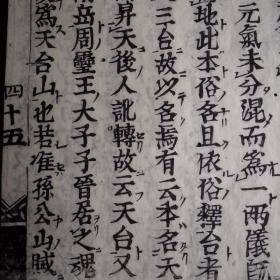 元氣未分混而爲一兩儀
地此本俗名且依俗釋台者
三台故以名焉有云本名天
昇天後人訛轉故云天台又
岳周靈王大子子晉居之魂
爲天台山也若准孫公山賦
四十五